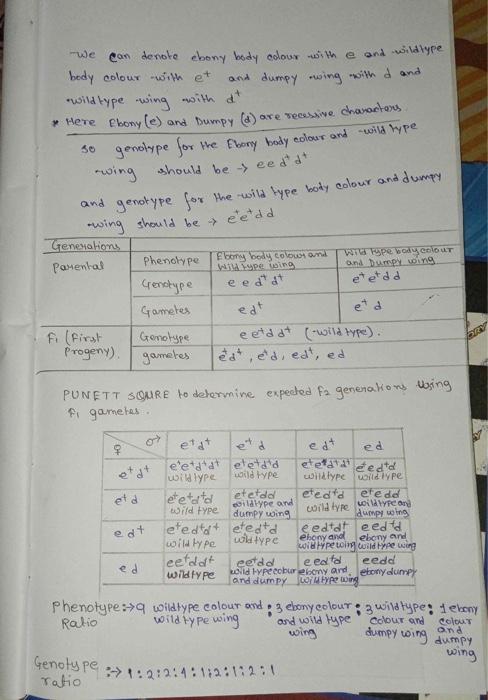 -We can denote ebony body colour with e and wildtype
body colour with e⁺ and dumpy wing with d and
wildtype wing with d⁺
* Here Ebony (e) and Dumpy (d) are recessive characters.
so genotype for the Ebony body colour and wild type
wing should be → e e d⁺ d⁺
and genotype for the wild type body colour and dumpy
wing should be → e⁺e⁺d d
Generations
Parental Phenotype Ebony body colour and Wild type wing Wild type body colour and Dumpy wing
Genotype e e d⁺ d⁺ e⁺ e⁺ d d
Gametes e d⁺ e⁺ d
F₁ (First Progeny). Genotype e e⁺ d d⁺ (wild type).
gametes e⁺d⁺, e⁺d, ed⁺, ed
PUNETT SQURE to determine expected F2 generations using
F₁ gametes.
♀ ♂ e⁺d⁺ e⁺d e d⁺ ed
e⁺d⁺ e⁺e⁺d⁺d⁺ e⁺e⁺d⁺d e⁺e d⁺d⁺ e⁺e d⁺d
wildtype wildtype wildtype wildtype
e⁺d e⁺e⁺d⁺d e⁺e⁺dd e⁺ed⁺d e⁺edd
wild type wildtype and dumpy wing wild type wildtype and dumpy wing
e d⁺ e⁺ed⁺d⁺ e⁺ed⁺d eed⁺d⁺ eed⁺d
wildtype wildtype ebony and wildtype wing ebony and wildtype wing
ed ee⁺dd⁺ ee⁺dd eed⁺d eedd
wildtype wild type colour and dumpy ebony and wildtype wing ebony dumpy
Phenotype :→ 9 wildtype colour and : 3 ebony colour : 3 wildtype : 1 ebony
Ratio wildtype wing and wild type colour and colour
wing dumpy wing and
dumpy
wing
Genotype :→ 1:2:2:4:1:2:1:2:1
ratio